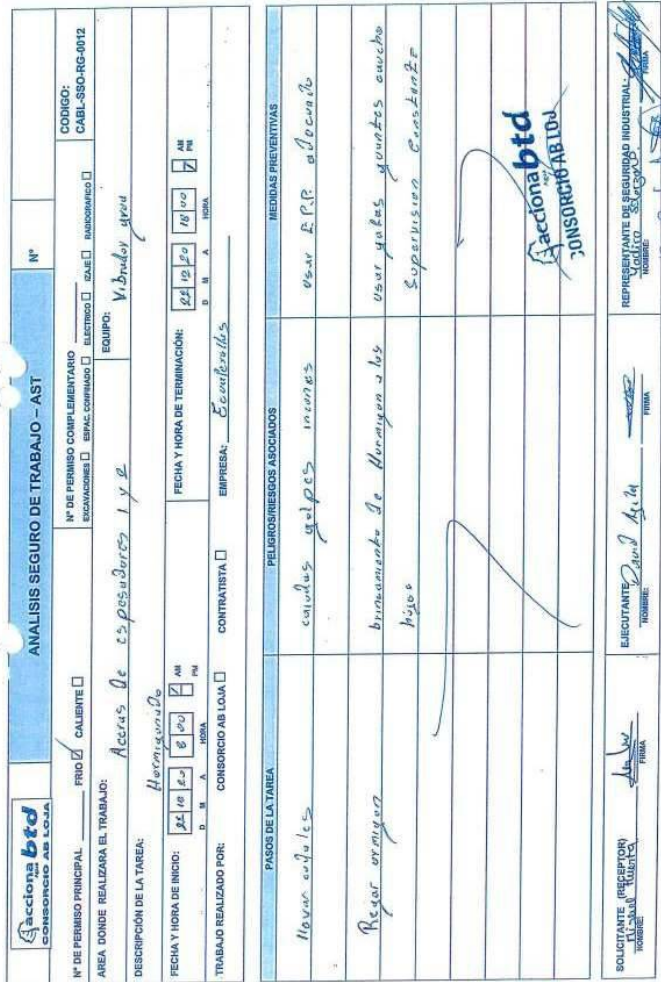 acciona btd
agua
CONSORCIO AB LOJA
ANALISIS SEGURO DE TRABAJO – AST
N°
N° DE PERMISO PRINCIPAL FRIO CALIENTE
N° DE PERMISO COMPLEMENTARIO
EXCAVACIONES ESPAC. CONFINADO ELECTRICO IZAJE RADIOGRAFICO
CODIGO:
CABL-SSO-RG-0012
AREA DONDE REALIZARA EL TRABAJO:
Aceras de espesadores 1 y 2
EQUIPO:
Vibrador
DESCRIPCIÓN DE LA TAREA:
Hormigonado
FECHA Y HORA DE INICIO:
10 20 8 00 AM
PM
D M A HORA
FECHA Y HORA DE TERMINACIÓN:
12 20 18 00 AM
PM
D M A HORA
TRABAJO REALIZADO POR: CONSORCIO AB LOJA CONTRATISTA
EMPRESA:
PASOS DE LA TAREA
PELIGROS/RIESGOS ASOCIADOS
MEDIDAS PREVENTIVAS
caidas golpes
usar E.P.P. adecuado
Regar ormigon
brincamiento de Hormigon a los
usar gafas guantes caucho
Supervision Constante
acciona btd
agua
CONSORCIO AB LOJ
SOLICITANTE (RECEPTOR)
NOMBRE:
FIRMA
EJECUTANTE David
NOMBRE:
FIRMA
REPRESENTANTE DE SEGURIDAD INDUSTRIAL:
NOMBRE:
FIRMA